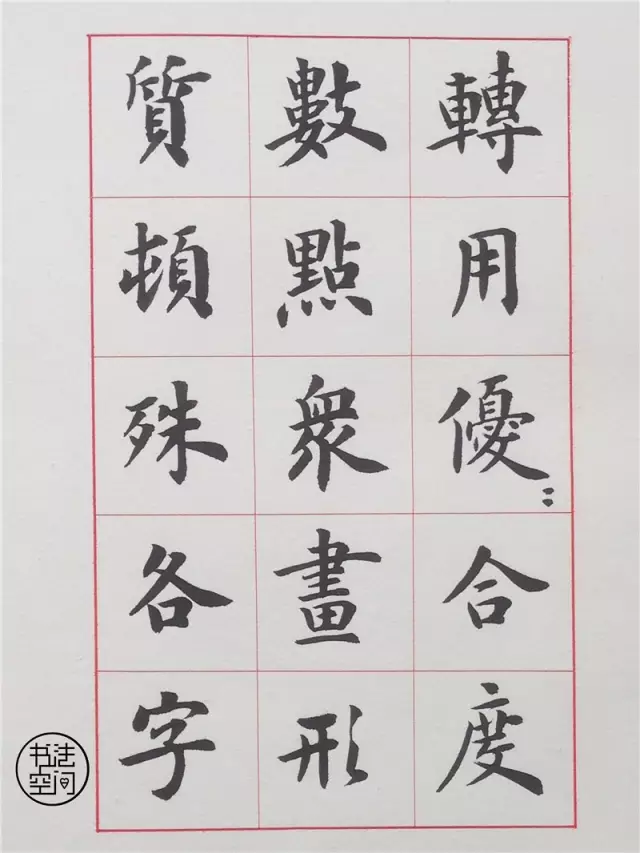 轉用優〻合度
數點衆畫形
質頓殊各字
书法
空间